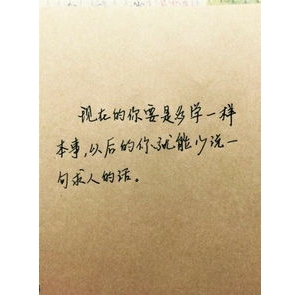 现在的你要是多学一样
本事,以后的你就能少说一
句求人的话。